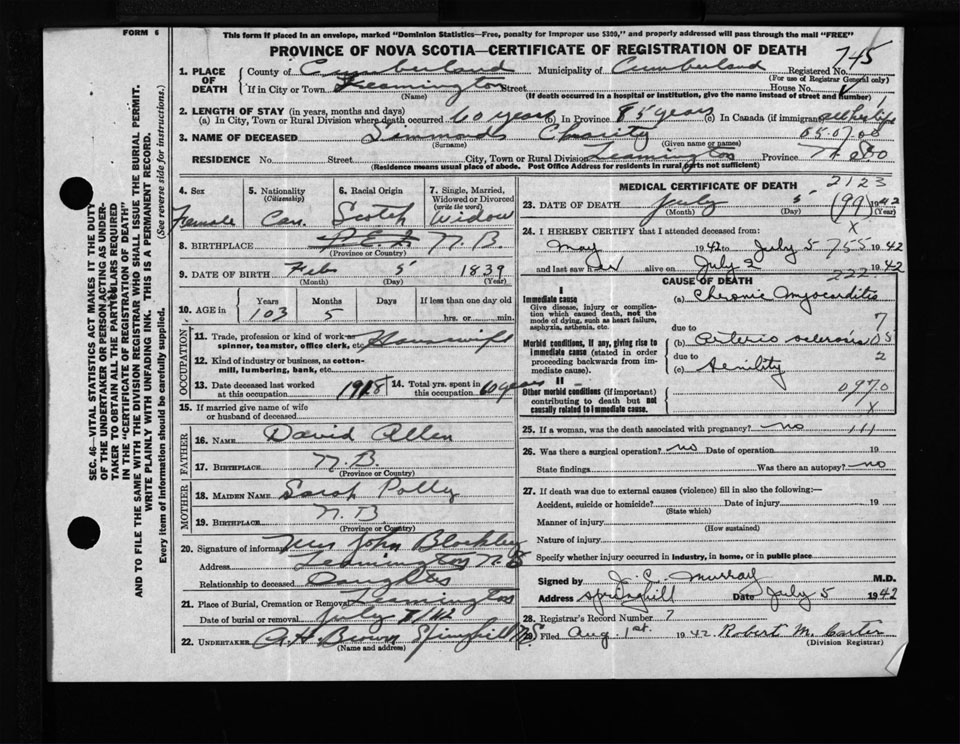 FORM 6
This form if placed in an envelope, marked "Dominion Statistics—Free, penalty for improper use $300," and properly addressed will pass through the mail "FREE"
PROVINCE OF NOVA SCOTIA—CERTIFICATE OF REGISTRATION OF DEATH
745
1. PLACE OF DEATH
County of Cumberland Municipality of Cumberland Registered No.
(For use of Registrar General only)
If in City or Town Leamington Street House No.
(Name) (If death occurred in a hospital or institution, give the name instead of street and number)
2. LENGTH OF STAY (in years, months and days)
(a) In City, Town or Rural Division where death occurred 60 years (b) In Province 85 years (c) In Canada (if immigrant)
3. NAME OF DECEASED Simmonds Charity
(Surname) (Given name or names)
RESIDENCE No. Street City, Town or Rural Division Leamington Province
(Residence means usual place of abode. Post Office Address for residents in rural parts not sufficient)
4. Sex
Female
5. Nationality
(Citizenship)
Can.
6. Racial Origin
Scotch
7. Single, Married, Widowed or Divorced
(write the word)
Widow
8. BIRTHPLACE P.E.I. N B
(Province or Country)
9. DATE OF BIRTH Feb 5 1839
(Month) (Day) (Year)
10. AGE IN
Years Months Days If less than one day old
103 5 hrs. or min.
OCCUPATION
11. Trade, profession or kind of work—as spinner, teamster, office clerk, etc. Housewife
12. Kind of industry or business, as cotton-mill, lumbering, bank, etc.
13. Date deceased last worked at this occupation 1918
14. Total yrs. spent in this occupation 60 years
15. If married give name of wife or husband of deceased
FATHER
16. NAME David Allen
17. BIRTHPLACE N. B
(Province or Country)
MOTHER
18. MAIDEN NAME Sarah Polly
19. BIRTHPLACE N. B
(Province or Country)
20. Signature of informant Mrs John Blackley
Address Leamington N. S
Relationship to deceased Daughter
21. Place of Burial, Cremation or Removal Leamington
Date of burial or removal July 7/42
22. UNDERTAKER A H Brown Springhill N S
(Name and address)
MEDICAL CERTIFICATE OF DEATH
2123
23. DATE OF DEATH July 5 (99) 1942
(Month) (Day) (Year)
24. I HEREBY CERTIFY that I attended deceased from: X
May 1942 to July 5 755 1942
and last saw her alive on July 2 222 1942
CAUSE OF DEATH
I
Immediate cause
Give disease, injury or complication which caused death, not the mode of dying, such as heart failure, asphyxia, asthenia, etc.
(a) Chronic Myocarditis
due to 7
Morbid conditions, if any, giving rise to immediate cause (stated in order proceeding backwards from immediate cause).
(b) Arterio sclerosis
due to 2
(c) Senility
II
Other morbid conditions (if important) contributing to death but not causally related to immediate cause.
0970
X
25. If a woman, was the death associated with pregnancy? no 111
26. Was there a surgical operation? no Date of operation 19
State findings Was there an autopsy? no
27. If death was due to external causes (violence) fill in also the following:—
Accident, suicide or homicide? Date of injury 19
(State which)
Manner of injury
(How sustained)
Nature of injury
Specify whether injury occurred in industry, in home, or in public place
Signed by J. C. Murray M.D.
Address Springhill Date July 5 1942
28. Registrar's Record Number 7
29. Filed Aug. 1st. 1942. Robert M. Carter
(Division Registrar)
SEC. 46—VITAL STATISTICS ACT MAKES IT THE DUTY
OF THE UNDERTAKER OR PERSON ACTING AS UNDER-
TAKER TO OBTAIN ALL THE PARTICULARS REQUIRED
IN THE "CERTIFICATE OF REGISTRATION OF DEATH"
AND TO FILE THE SAME WITH THE DIVISION REGISTRAR WHO SHALL ISSUE THE BURIAL PERMIT.
WRITE PLAINLY WITH UNFADING INK. THIS IS A PERMANENT RECORD.
Every item of information should be carefully supplied. (See reverse side for instructions.)